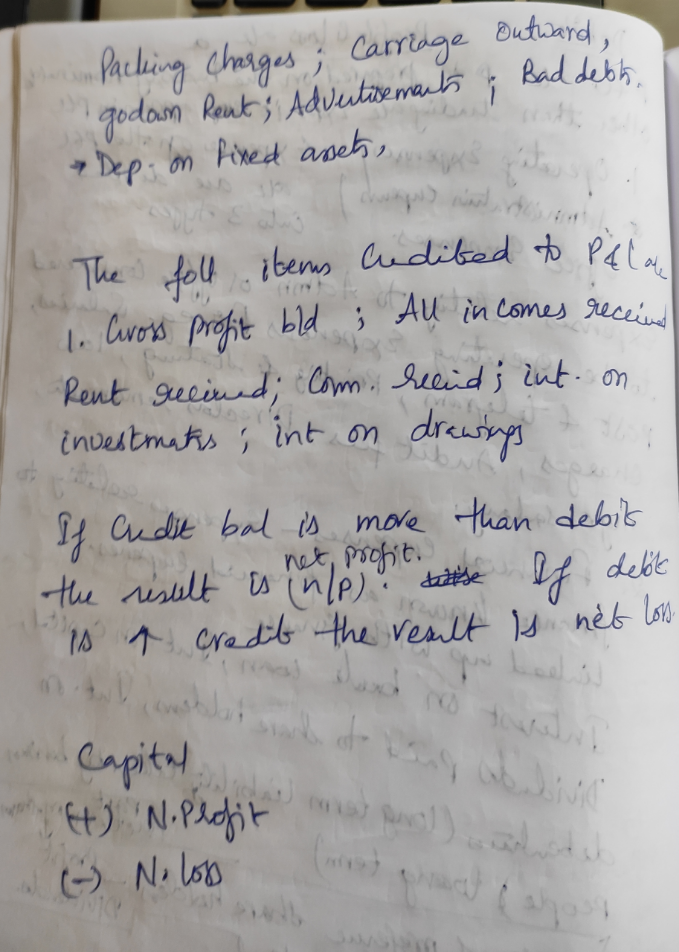 Packing Charges ; Carriage Outward,
godown Rent ; Advertisements ; Bad debts.
→ Dep. on fixed assets,
The foll items Credited to P&L a/c
1. Gross Profit b/d ; All incomes received
Rent received; Com. Receid ; int. on
investments ; int on drawings
If Credit bal is more than debit
net profit.
the result is (n/p). If debit
is ↑ credit the result is net loss.
Capital
(+) N.Profit
(-) N.loss